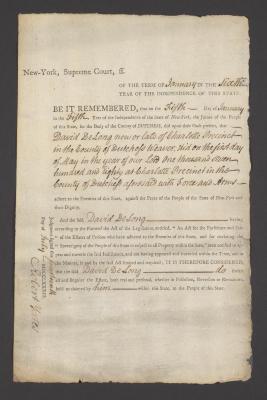 New-York, Supreme Court, ss.
OF THE TERM OF January IN THE Sixth
YEAR OF THE INDEPENDENCE OF THIS STATE.
BE IT REMEMBERED, that on the Fifth Day of January
in the Fifth Year of the Independence of the State of New-York, the Jurors of the People
of this State, for the Body of the County of DUTCHESS, did upon their Oath present, that
David De Long now or late of Charlotte Precinct
in the County of Dutchess Weaver, did on the first day
of May in the year of our Lord one thousand seven
hundred and eighty at Charlotte Precinct in the
County of Dutchess aforesaid with Force and Arms
adhere to the Enemies of this State, against the Peace of the People of the State of New-York and
their Dignity.
And the said David De Long having
according to the Form of the Act of the Legislature, entitled, "An Act for the Forfeiture and Sale
"of the Estates of Persons who have adhered to the Enemies of this State, and for declaring the
"Sovereignty of the People of this State in respect to all Property within the same,"
and the said Act
IT IS THEREFORE CONSIDERED,
that the said David De Long do forfeit
all and singular the Estate, both real and personal, whether in Possession, Reversion or Remainder,
held or claimed by him within this State, to the People of this State.
Judgment signed this
Day of July
Robert Yates